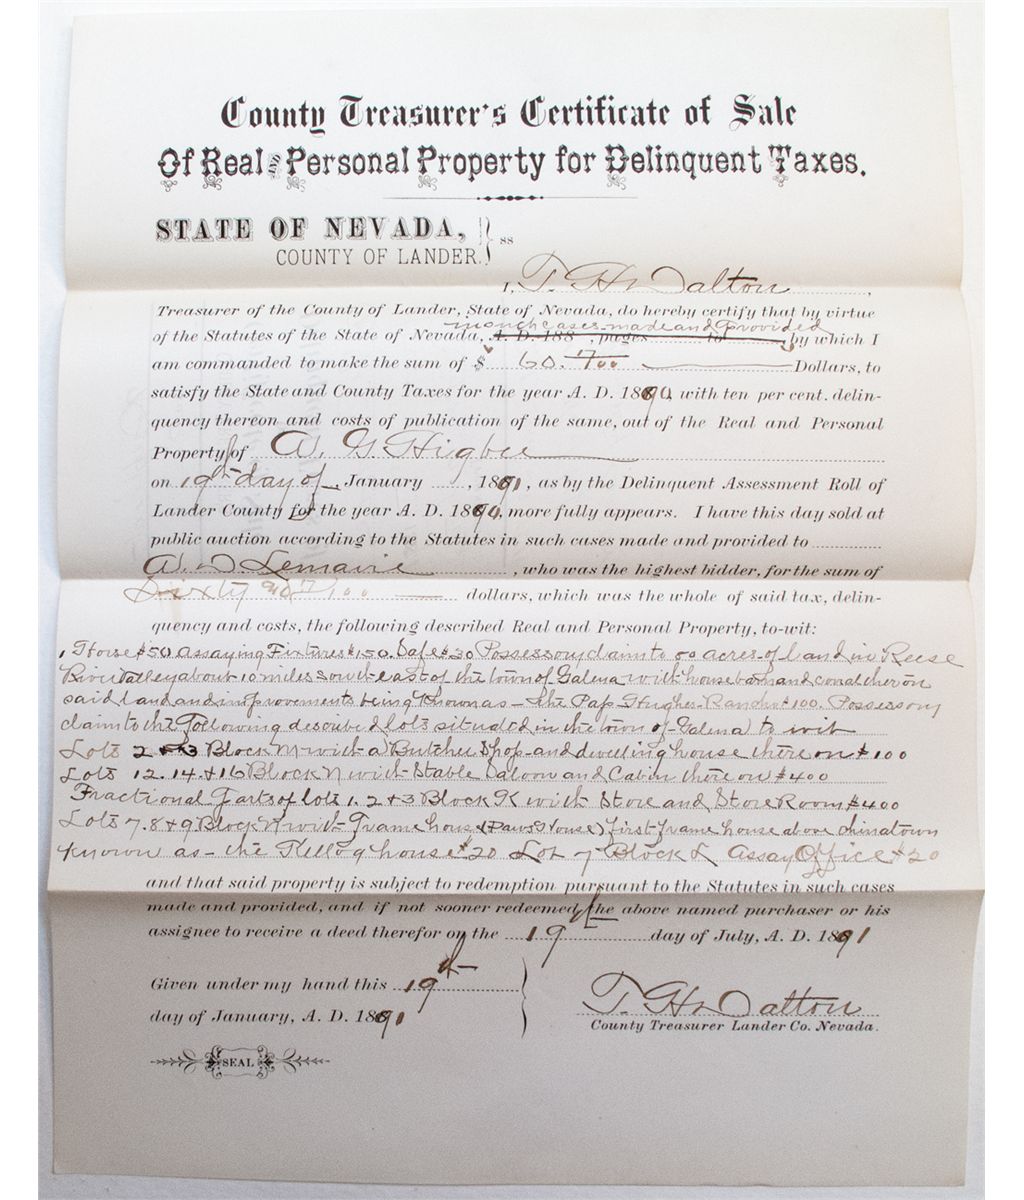 County Treasurer's Certificate of Sale
Of Real AND Personal Property for Delinquent Taxes.
STATE OF NEVADA,
COUNTY OF LANDER. } ss
I, T. H. Dalton,
Treasurer of the County of Lander, State of Nevada, do hereby certify that by virtue
in such cases made and provided
of the Statutes of the State of Nevada, A. D. 188 , pages to by which I
am commanded to make the sum of $ 60.70/100 Dollars, to
satisfy the State and County Taxes for the year A. D. 1890, with ten per cent. delin-
quency thereon and costs of publication of the same, out of the Real and Personal
Property of A. G. Higbee
on 19th day of January , 1891, as by the Delinquent Assessment Roll of
Lander County for the year A. D. 1890, more fully appears. I have this day sold at
public auction according to the Statutes in such cases made and provided to
A. D. Lemaire , who was the highest bidder, for the sum of
Sixty and 70/100 dollars, which was the whole of said tax, delin-
quency and costs, the following described Real and Personal Property, to-wit:
1 Horse $50 Assaying Fixtures $150. Safe $30 Possessory claim to acres of land in Reese
River Valley about 10 miles southeast of the town of Galena with house barn and corral thereon
said land and improvements being Known as the Pap Hughes Ranch $100. Possessory
claim to the following described lots situated in the town of Galena) to wit
Lots 2 & 3 Block M with a Butcher Shop and dwelling house there on $100
Lots 12. 14. & 16 Block N with Stable Saloon and Cabin there on $400
Fractional Parts of lots 1. 2 & 3 Block K with Store and Store Room $400
Lots 7. 8 & 9 Block N with Frame house ( House) first frame house above Chinatown
known as the Kellog house $20 Lot 7 Block L Assay Office $20
and that said property is subject to redemption pursuant to the Statutes in such cases
made and provided, and if not sooner redeemed, the above named purchaser or his
assignee to receive a deed therefor on the 19th day of July, A. D. 1891
Given under my hand this 19th
day of January, A. D. 1891
T. H. Dalton
County Treasurer Lander Co. Nevada.
SEAL